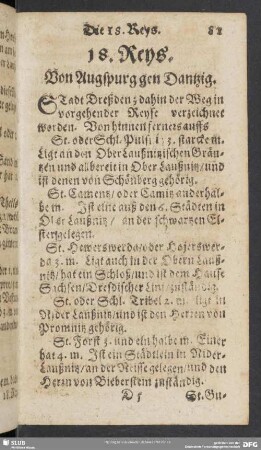 Die 18. Reys. 81
18. Reys.
Von Augspurg gen Dantzig.
STadt Dreßden / dahin der Weg in
vorgehender Reyse verzeichnet
worden. Von hinnen ferners auffs
St. oder Schl. Pulß. 1 / 3. starcke m.
Ligt an den Ober Laußnitzischen Gräntzen
und allbereit in Ober Laußnitz / und
ist denen von Schönberg gehörig.
St. Camentz / oder Camitz anderhalbe
m. Ist eine auß den 6. Städten in
Ober Laußnitz / an der schwartzen Elster
gelegen.
St. Hewerswerda / oder Hoyerswerda
3. m. Ligt auch in der Obern Laußnitz /
hat ein Schloß / und ist dem Hause
Sachsen / Dresdischer Lini / zuständig.
St. oder Schl. Tribel 2. m. ligt in
Nider Laußnitz / und ist den Herren von
Promnitz gehörig.
St. Forst 3. und ein halbe m. Einer
hat 4. m. Ist ein Städtlein in Nider
Laußnitz / an der Neisse gelegen / und den
Herrn von Bieberstein zuständig.
St. Gu-
SLUB
DFG